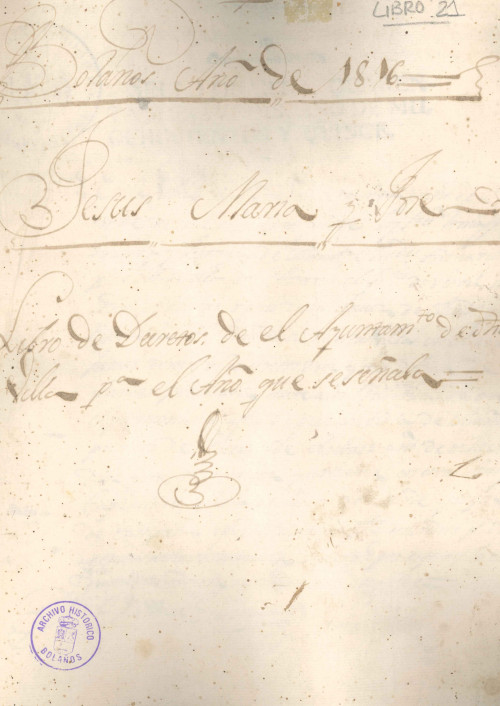 LIBRO 21
Bolaños. Año de 1816
Jesus Maria y Jose
Libro de Decretos. de el Ayuntam.to de
Villa p.a el Año. que se señala
ARCHIVO HISTORICO.
BOLAÑOS